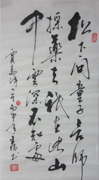 松下问童子言师
採藥去只在此山
中雲深不知處